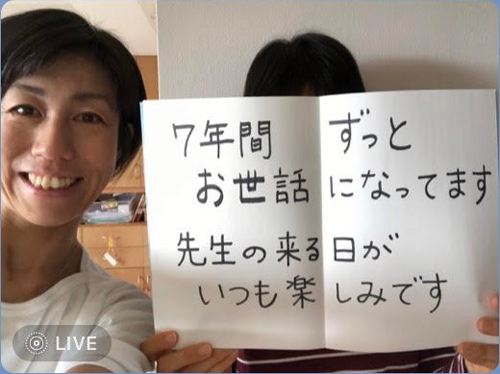 7年間 ずっと
お世話になってます
先生の来る日が
いつも楽しみです
LIVE